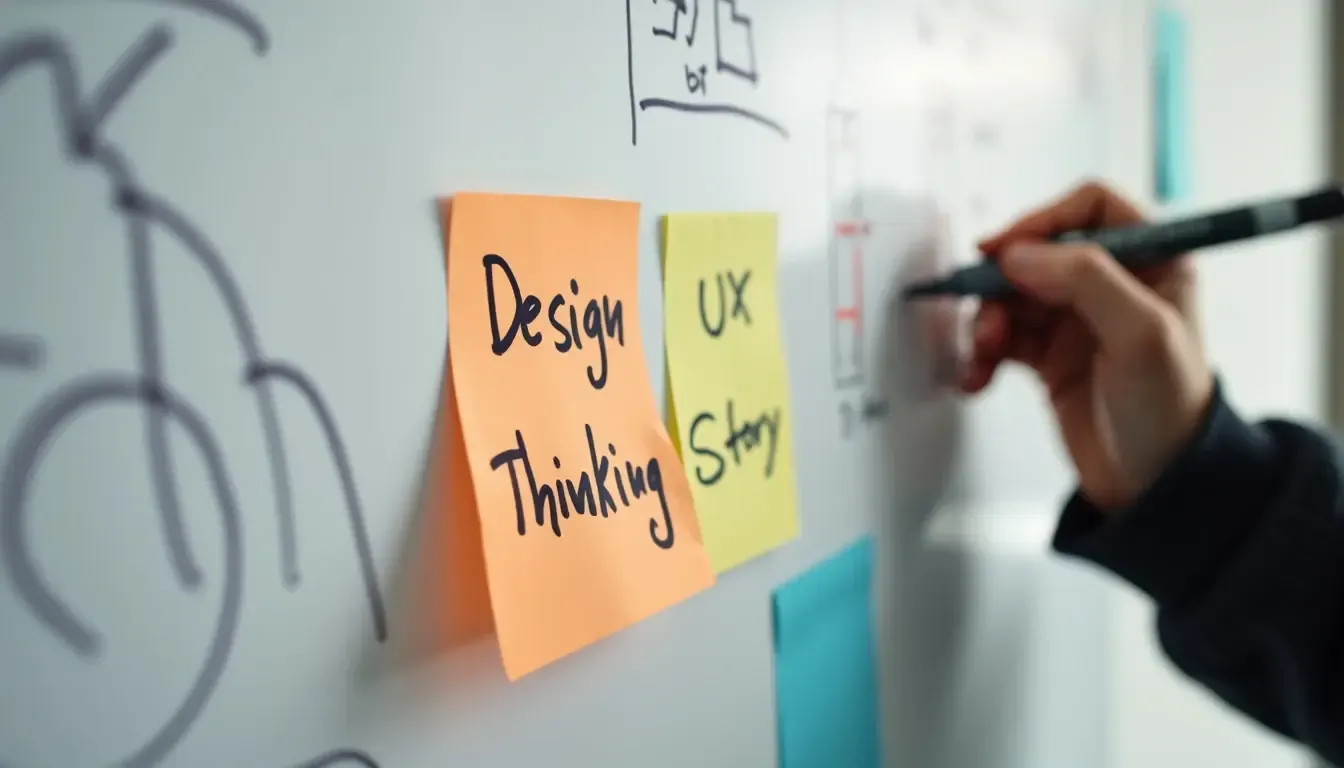 bi
Design
Thinking
UX
Story